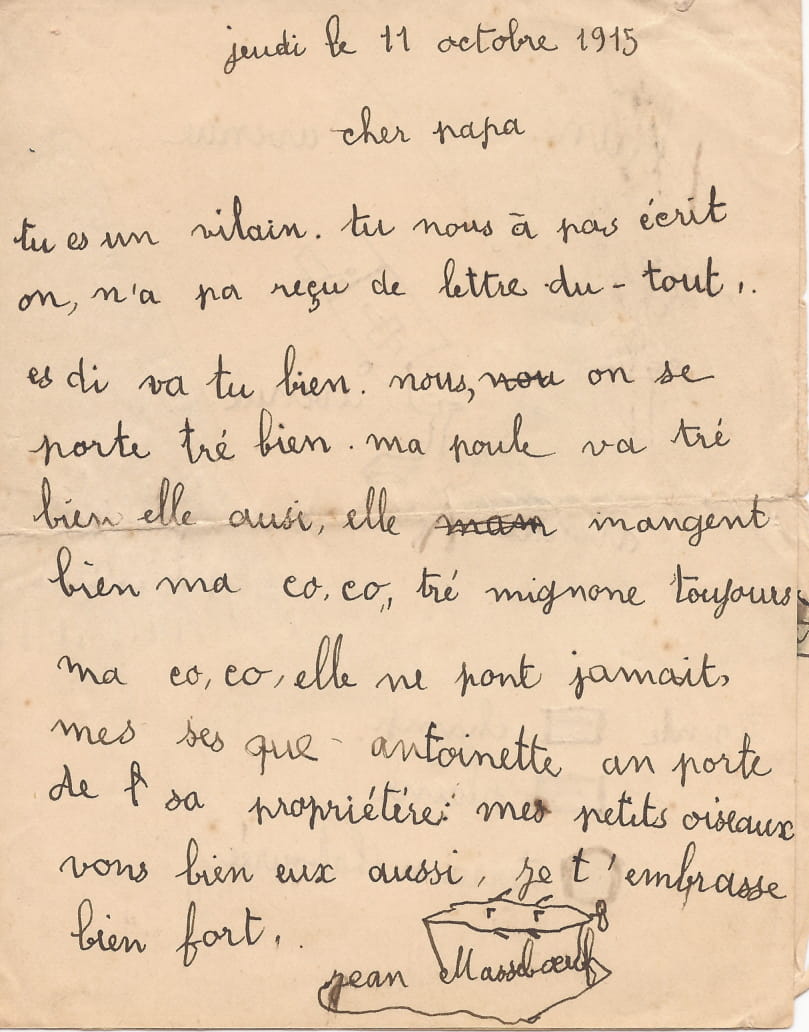 jeudi le 11 octobre 1915
cher papa
tu es un vilain. tu nous à pas écrit
on, n'a pa reçu de lettre du-tout,.
es di va tu bien. nous, nou on se
porte tré bien. ma poule va tré
bien elle ausi, elle mam mangent
bien ma co,co,, tré mignone toujours
ma co,co, elle ne pont jamait,
mes ses que - antoinette an porte
de l sa propriétére: mes petits oiseaux
vons bien eux aussi, je t'embrasse
bien fort,.
jean Masseboeuf